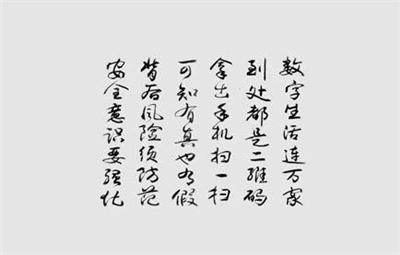 数字生活连万家
到处都是二维码
拿出手机扫一扫
可知有真也有假
背后风险须防范
安全意识要强化